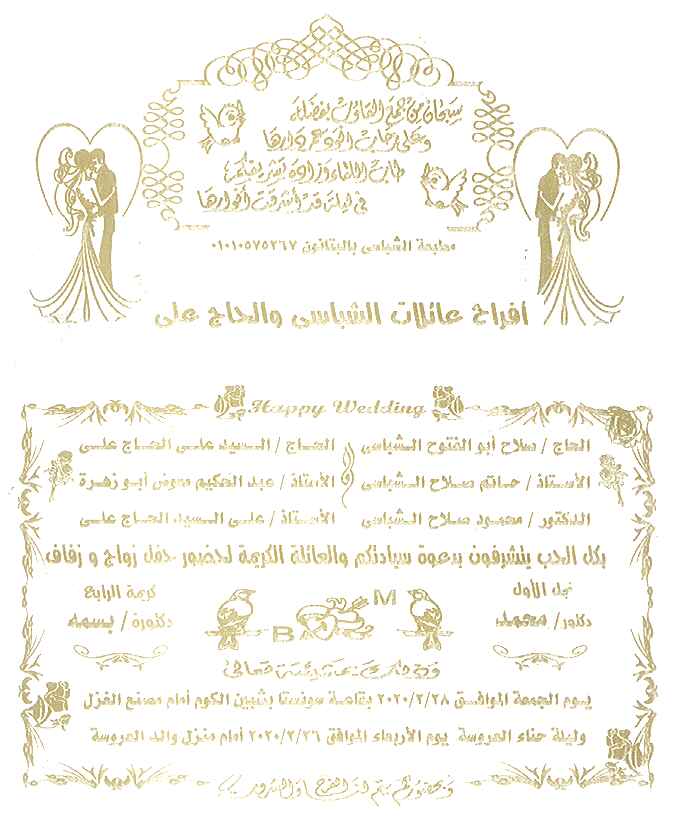 سبحان من جمع القلوب بفضله
وعلى رحاب الحق عمر دارها
طاب اللقاء وزاده تشريفكم
في ليلة قد أشرقت أنوارها
مطبعة الشباسى بالبتانون ٠١٠١٠٥٧٥٢٦٧
أفراح عائلات الشباسى والحاج على
Happy Wedding
الحاج / صلاح أبو الفتوح الشباسى الحاج / السيد على الحاج على
الأستاذ / حاتم صلاح الشباسى الأستاذ / عبد الحكيم معوض أبو زهرة
الدكتور / محمود صلاح الشباسى الأستاذ / على السيد الحاج على
بكل الحب يتشرفون بدعوة سيادتكم والعائلة الكريمة لحضور حفل زواج و زفاف
نجل الأول كريمة الرابع
دكتور / محمد دكتورة / بسمه
M
B
وذلك بمشيئة الله تعالى
يوم الجمعة الموافق ٢٠٢٠/٢/٢٨ بقاعة سونستا بشبين الكوم أمام مصنع الغزل
وليلة حناء العروسة يوم الأربعاء الموافق ٢٠٢٠/٢/٢٦ أمام منزل والد العروسة
وبحضوركم يتم لنا الفرح والسرور